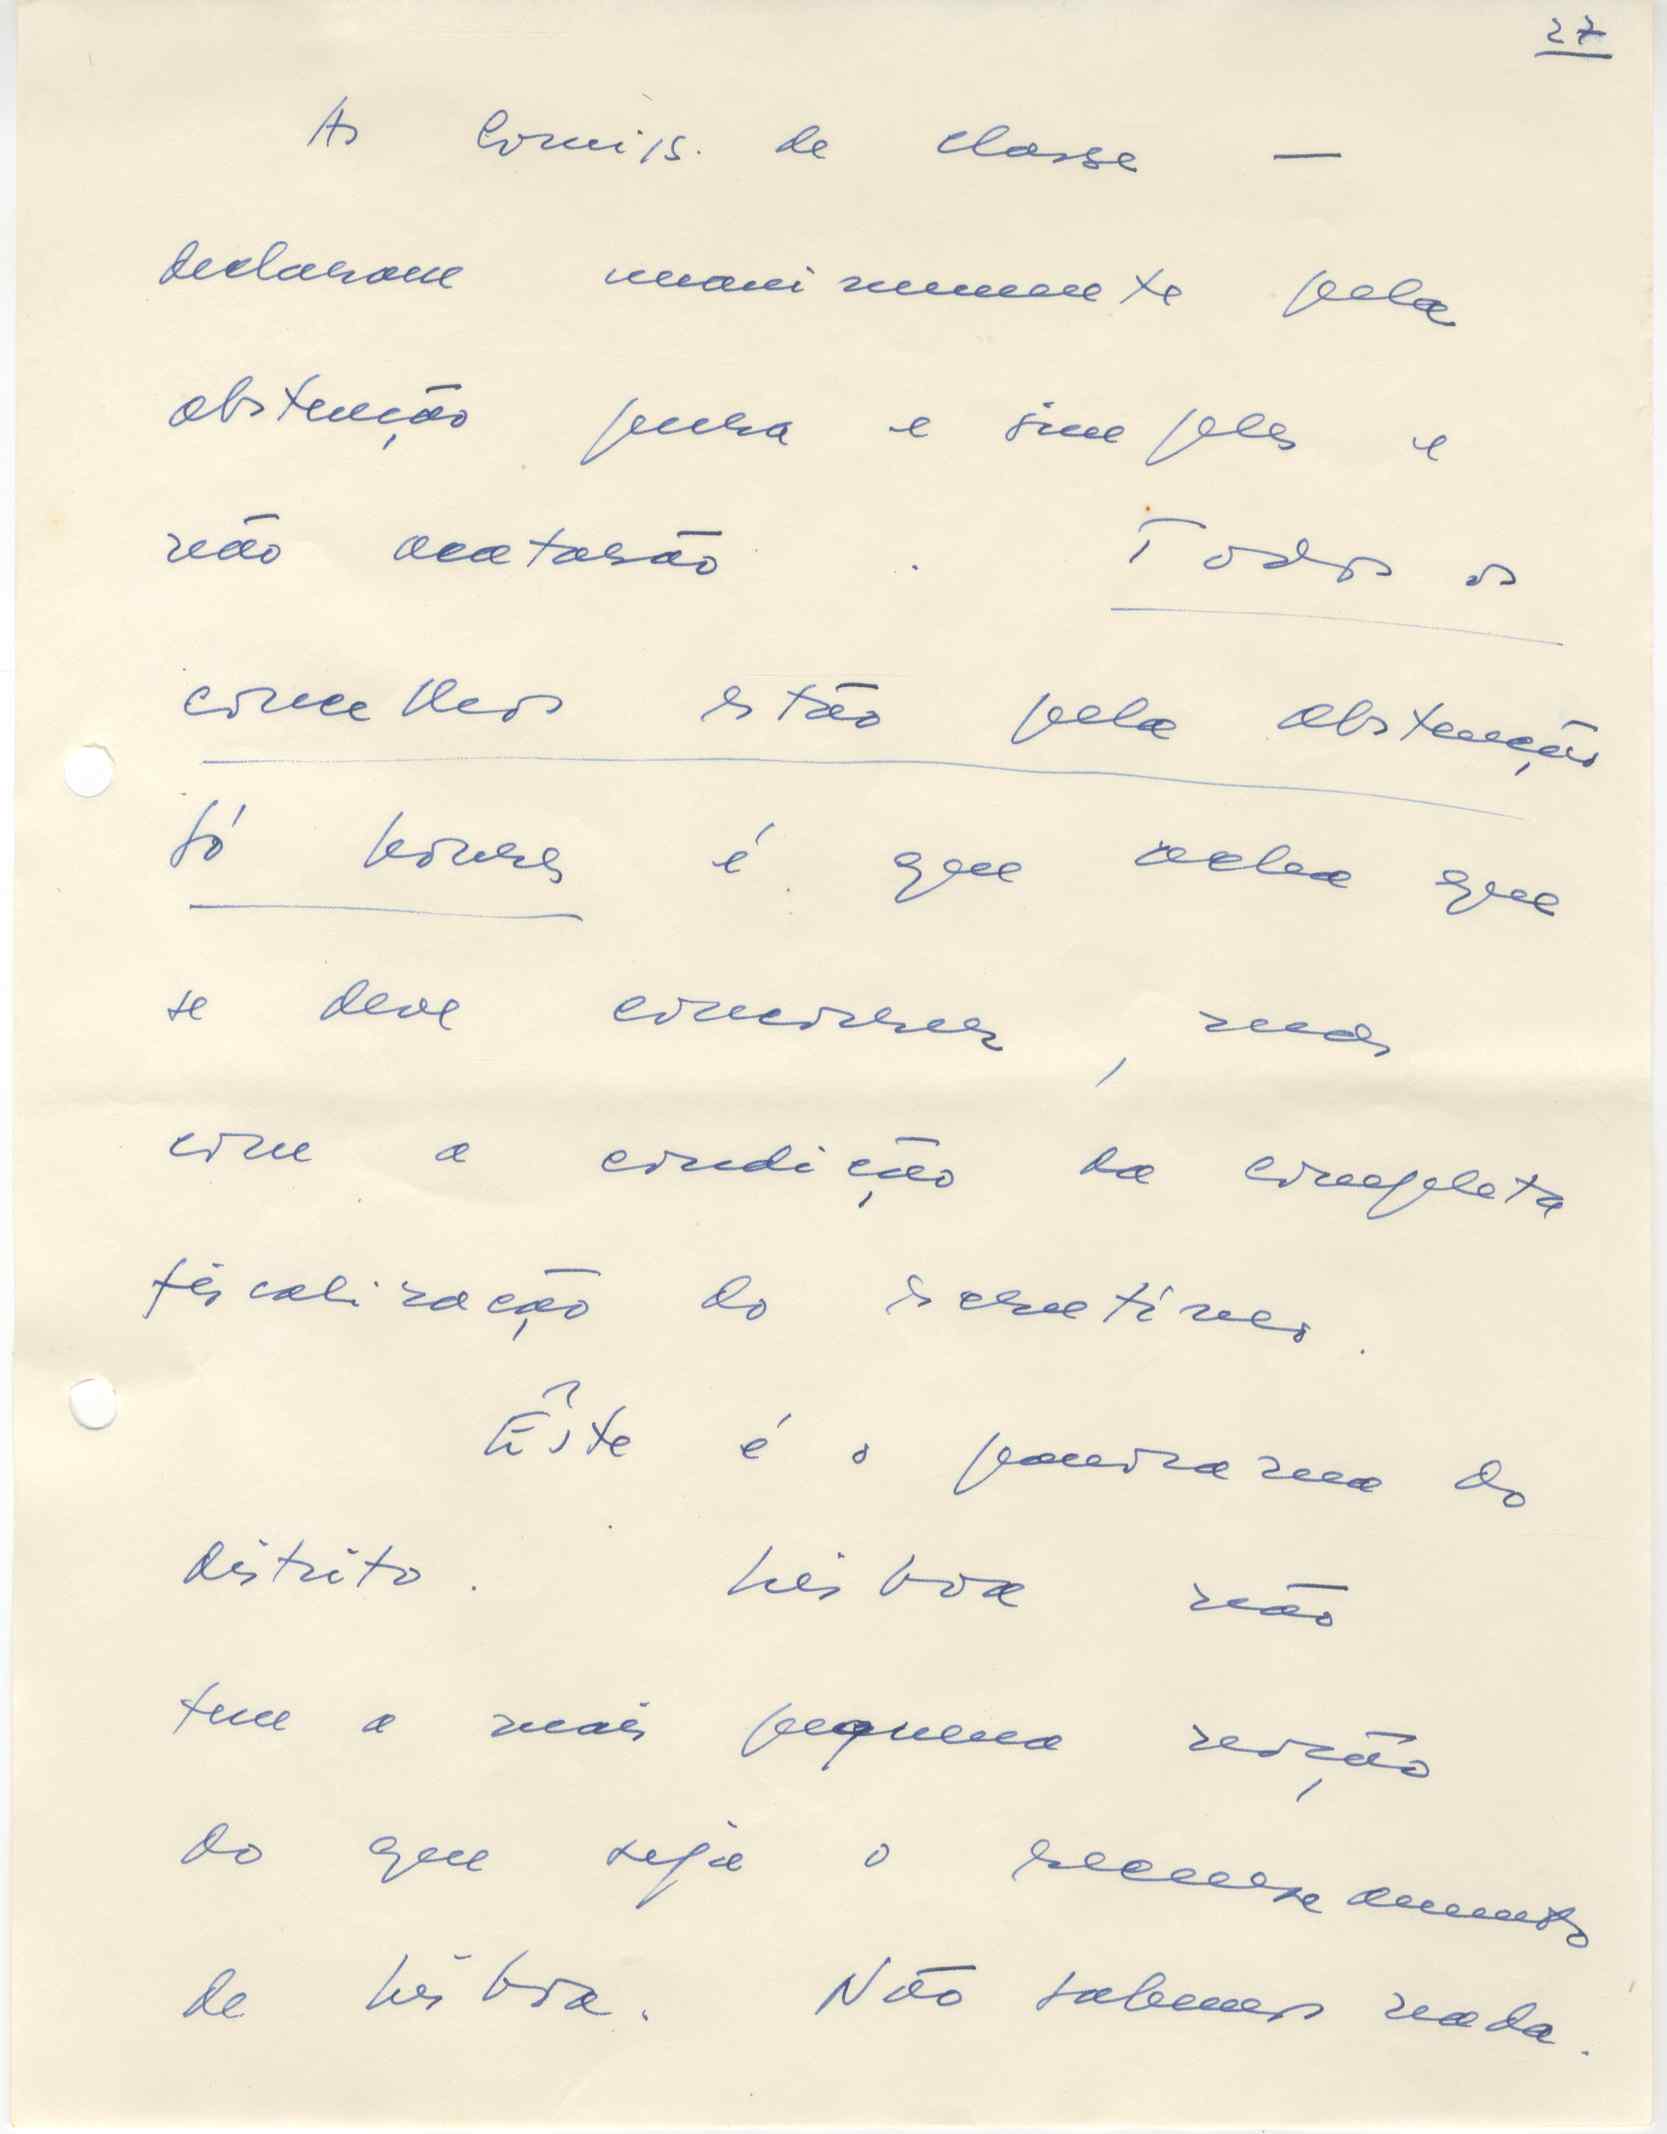 27
As Comiss. de classe —
declaram unanimemente pela
abstenção pura e simples e
não acatarão . Todos os
concelhos estão pela abstenção
Só Loures é que acha que
se deve concorrer, mas
com a condição da completa
fiscalização do escrutíneo.
Êste é o panorama do
distrito. Lisboa não
tem a mais pequena noção
do que seja o recenseamento
de Lisboa. Não sabemos nada.